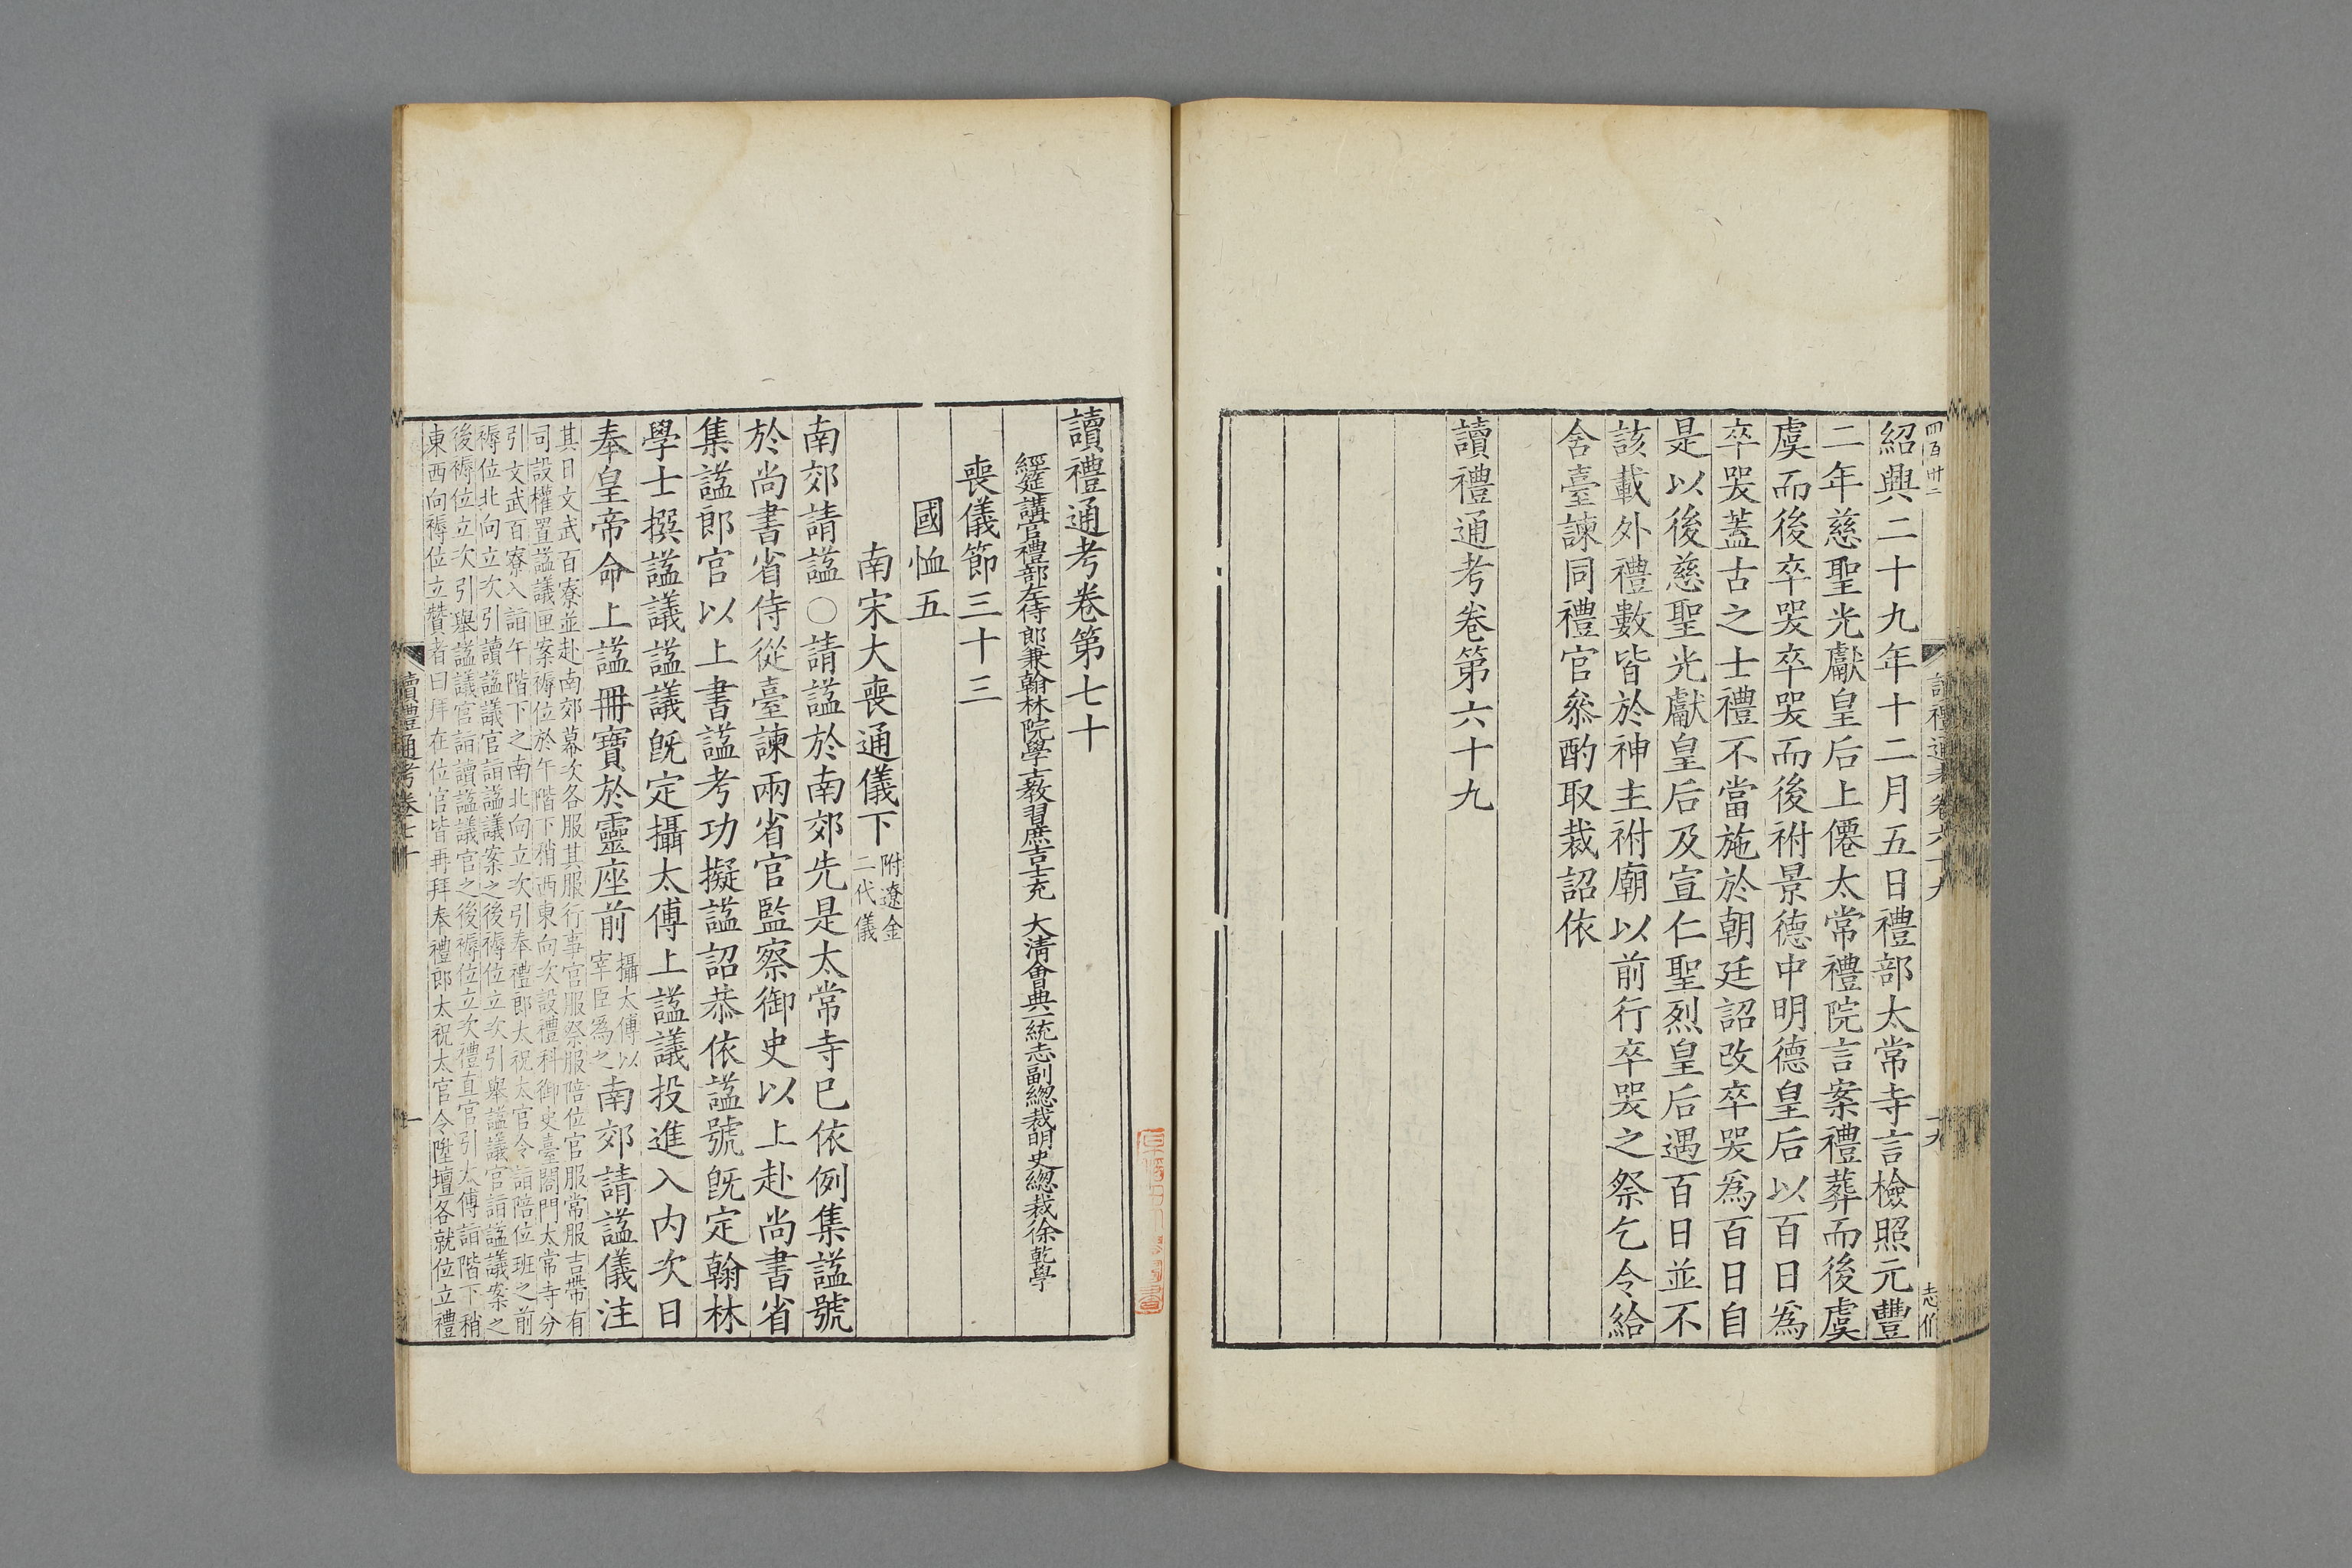 四百卅二
紹興二十九年十二月五日禮部太常寺言檢照元豐
二年慈聖光獻皇后上僊太常禮院言案禮葬而後虞
虞而後卒哭卒哭而後祔景德中明德皇后以百日爲
卒哭蓋古之士禮不當施於朝廷詔改卒哭爲百日自
是以後慈聖光獻皇后及宣仁聖烈皇后遇百日並不
該載外禮數皆於神主祔廟以前行卒哭之祭乞令給
舍臺諫同禮官叅酌取裁詔依
讀禮通考卷第六十九
讀禮通考卷六十九
十九
讀禮通考卷第七十
經筵講官禮部左侍郎兼翰林院學士教習庶吉士充 大清會典一統志副總裁明史總裁徐乾學
喪儀節三十三
國恤五
南宋大喪通儀下
附遼金
二代儀
南郊請謚○請謚於南郊先是太常寺已依例集謚號
於尚書省侍從臺諫兩省官監察御史以上赴尚書省
集謚郎官以上書謚考功擬謚詔恭依謚號旣定翰林
學士撰謚議謚議旣定攝太傅上謚議投進入内次日
奉皇帝命上謚冊寶於靈座前
攝太傅以
宰臣爲之
南郊請謚儀注
其日文武百寮並赴南郊幕次各服其服行事官服祭服陪位官服常服吉帶有
司設權置謚議匣案褥位於午階下稍西東向次設禮科御史臺閤門太常寺分
引文武百寮入詣午階下之南北向立次引奉禮郎太祝太官令詣陪位班之前
褥位北向立次引讀謚議官詣謚議案之後褥位立次引舉謚議官詣謚議案之
後褥位立次引舉謚議官詣讀謚議官之後褥位立次禮直官引太傅詣階下稍
東西向褥位立贊者曰拜在位官皆再拜奉禮郎太祝太官令陞壇各就位立禮
讀禮通考卷七十
一